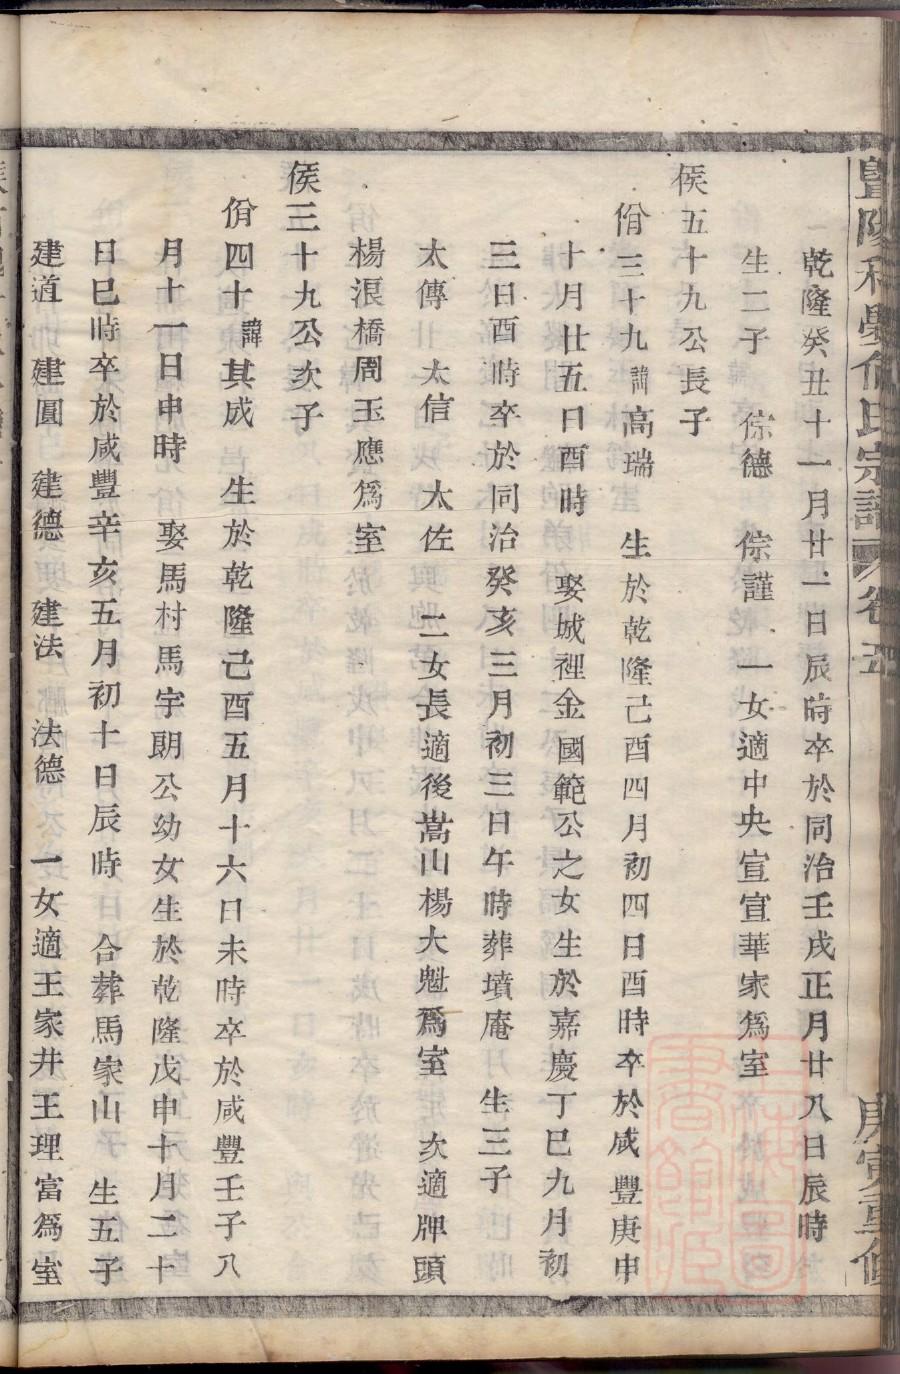 乾隆癸丑十一月廿一日辰時卒於同治壬戌正月廿八日辰時
生二子 倧德 倧謹 一女適中央宣宣華家爲室
侯五十九公長子
佾三十九諱高瑞 生於乾隆己酉四月初四日酉時卒於咸豐庚申
十月廿五日酉時 娶城裡金國範公之女生於嘉慶丁巳九月初
三日酉時卒於同治癸亥三月初三日午時葬墳庵 生三子
太傳 太信 太佐 二女長適後嵩山楊大魁爲室 次適牌頭
楊浿橋周玉應爲室
侯三十九公次子
佾四十諱其成 生於乾隆己酉五月十六日未時卒於咸豐壬子八
月十一日申時 娶馬村馬宇朗公幼女生於乾隆戊申十月二十
日巳時卒於咸豐辛亥五月初十日辰時 合葬馬家山 生五子
建道 建圓 建德 建法 法德 一女適王家井王理富爲室
氏宗譜 卷五 庚寅重修